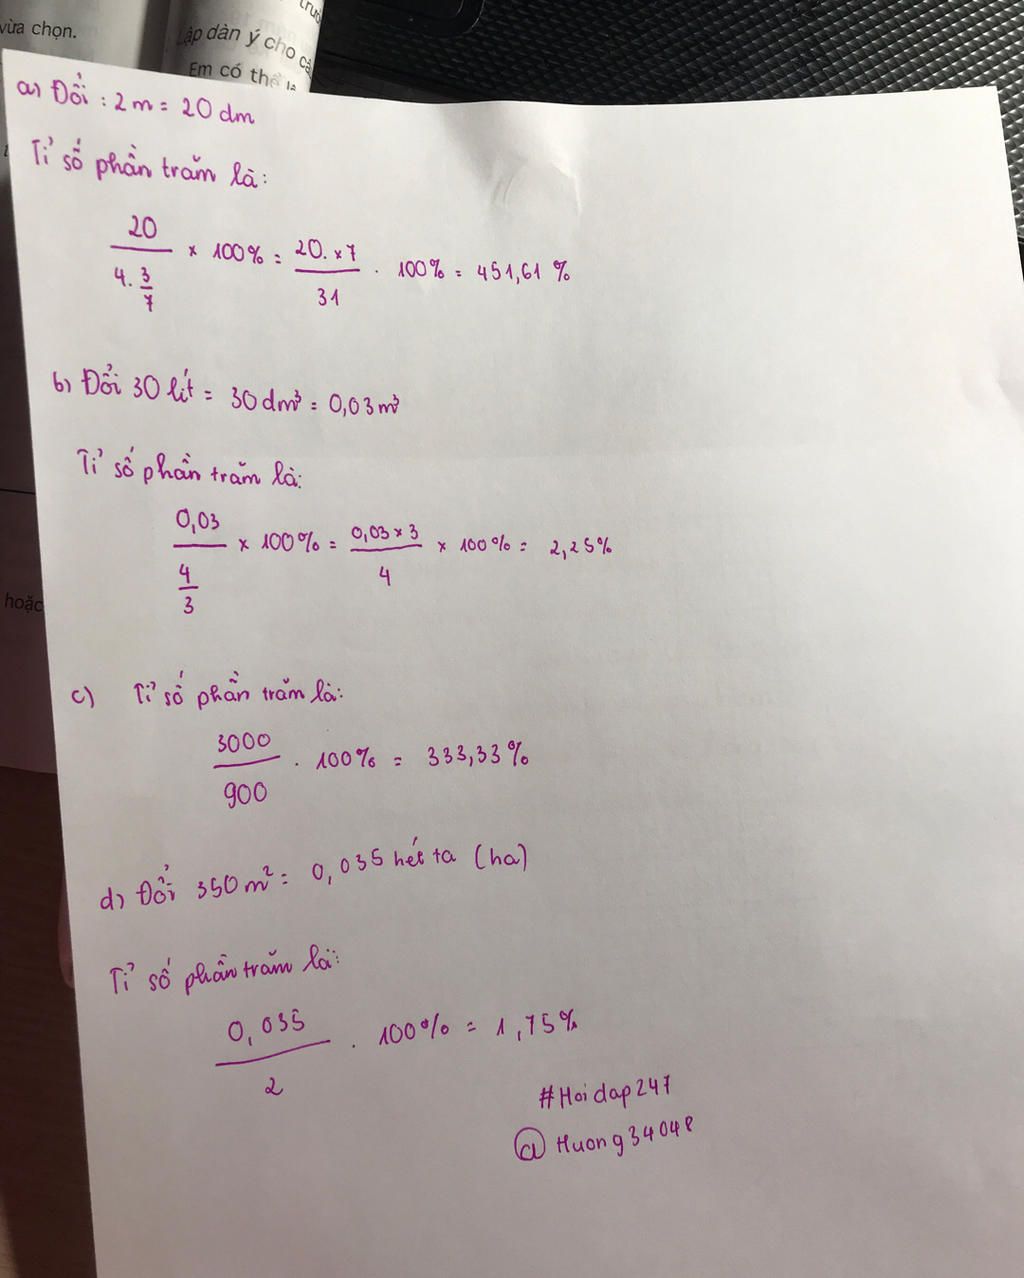 vừa chọn.
Lập dàn ý cho
Em có thể
a) Đổi : 2 m = 20 dm
Tỉ số phần trăm là:
20 / (4. 3/7) × 100% = (20. × 7) / 31 . 100% = 451,61 %
b) Đổi 30 lít = 30 dm³ = 0,03 m³
Tỉ số phần trăm là:
0,03 / (4/3) × 100% = (0,03 × 3) / 4 × 100% = 2,25%
hoặc
c) Tỉ số phần trăm là:
3000 / 900 . 100% = 333,33%
d) Đổi 350 m² = 0,035 héc ta (ha)
Tỉ số phần trăm là:
0,035 / 2 . 100% = 1,75%
#Hoidap247
@Huong34048